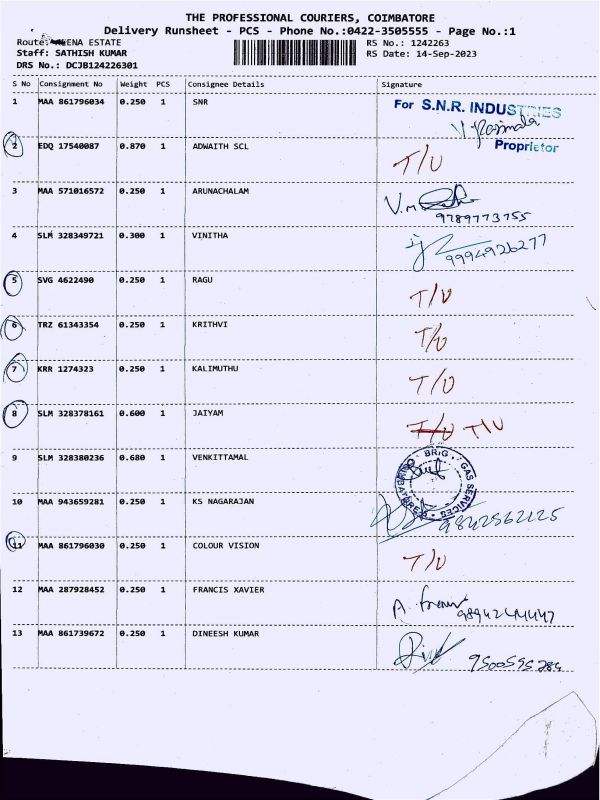 THE PROFESSIONAL COURIERS, COIMBATORE
Delivery Runsheet - PCS - Phone No.:0422-3505555 - Page No.:1
Route: ENA ESTATE RS No.: 1242263
Staff: SATHISH KUMAR RS Date: 14-Sep-2023
DRS No.: DCJB124226301
S No Consignment No Weight PCS Consignee Details Signature
1 MAA 861796034 0.250 1 SNR For S.N.R. INDUSTRIES
Proprietor
2 EDQ 17540087 0.870 1 ADWAITH SCL T/U
3 MAA 571016572 0.250 1 ARUNACHALAM
9789773755
4 SLM 328349721 0.300 1 VINITHA 9994926277
5 SVG 4622490 0.250 1 RAGU T/U
6 TRZ 61343354 0.250 1 KRITHVI T/U
7 KRR 1274323 0.250 1 KALIMUTHU T/U
8 SLM 328378161 0.600 1 JAIYAM T/U T/U
9 SLM 328380236 0.680 1 VENKITTAMAL BRIG GAS SERVICES
10 MAA 943659281 0.250 1 KS NAGARAJAN 9842562125
11 MAA 861796030 0.250 1 COLOUR VISION T/U
12 MAA 287928452 0.250 1 FRANCIS XAVIER
13 MAA 861739672 0.250 1 DINEESH KUMAR 9500595784